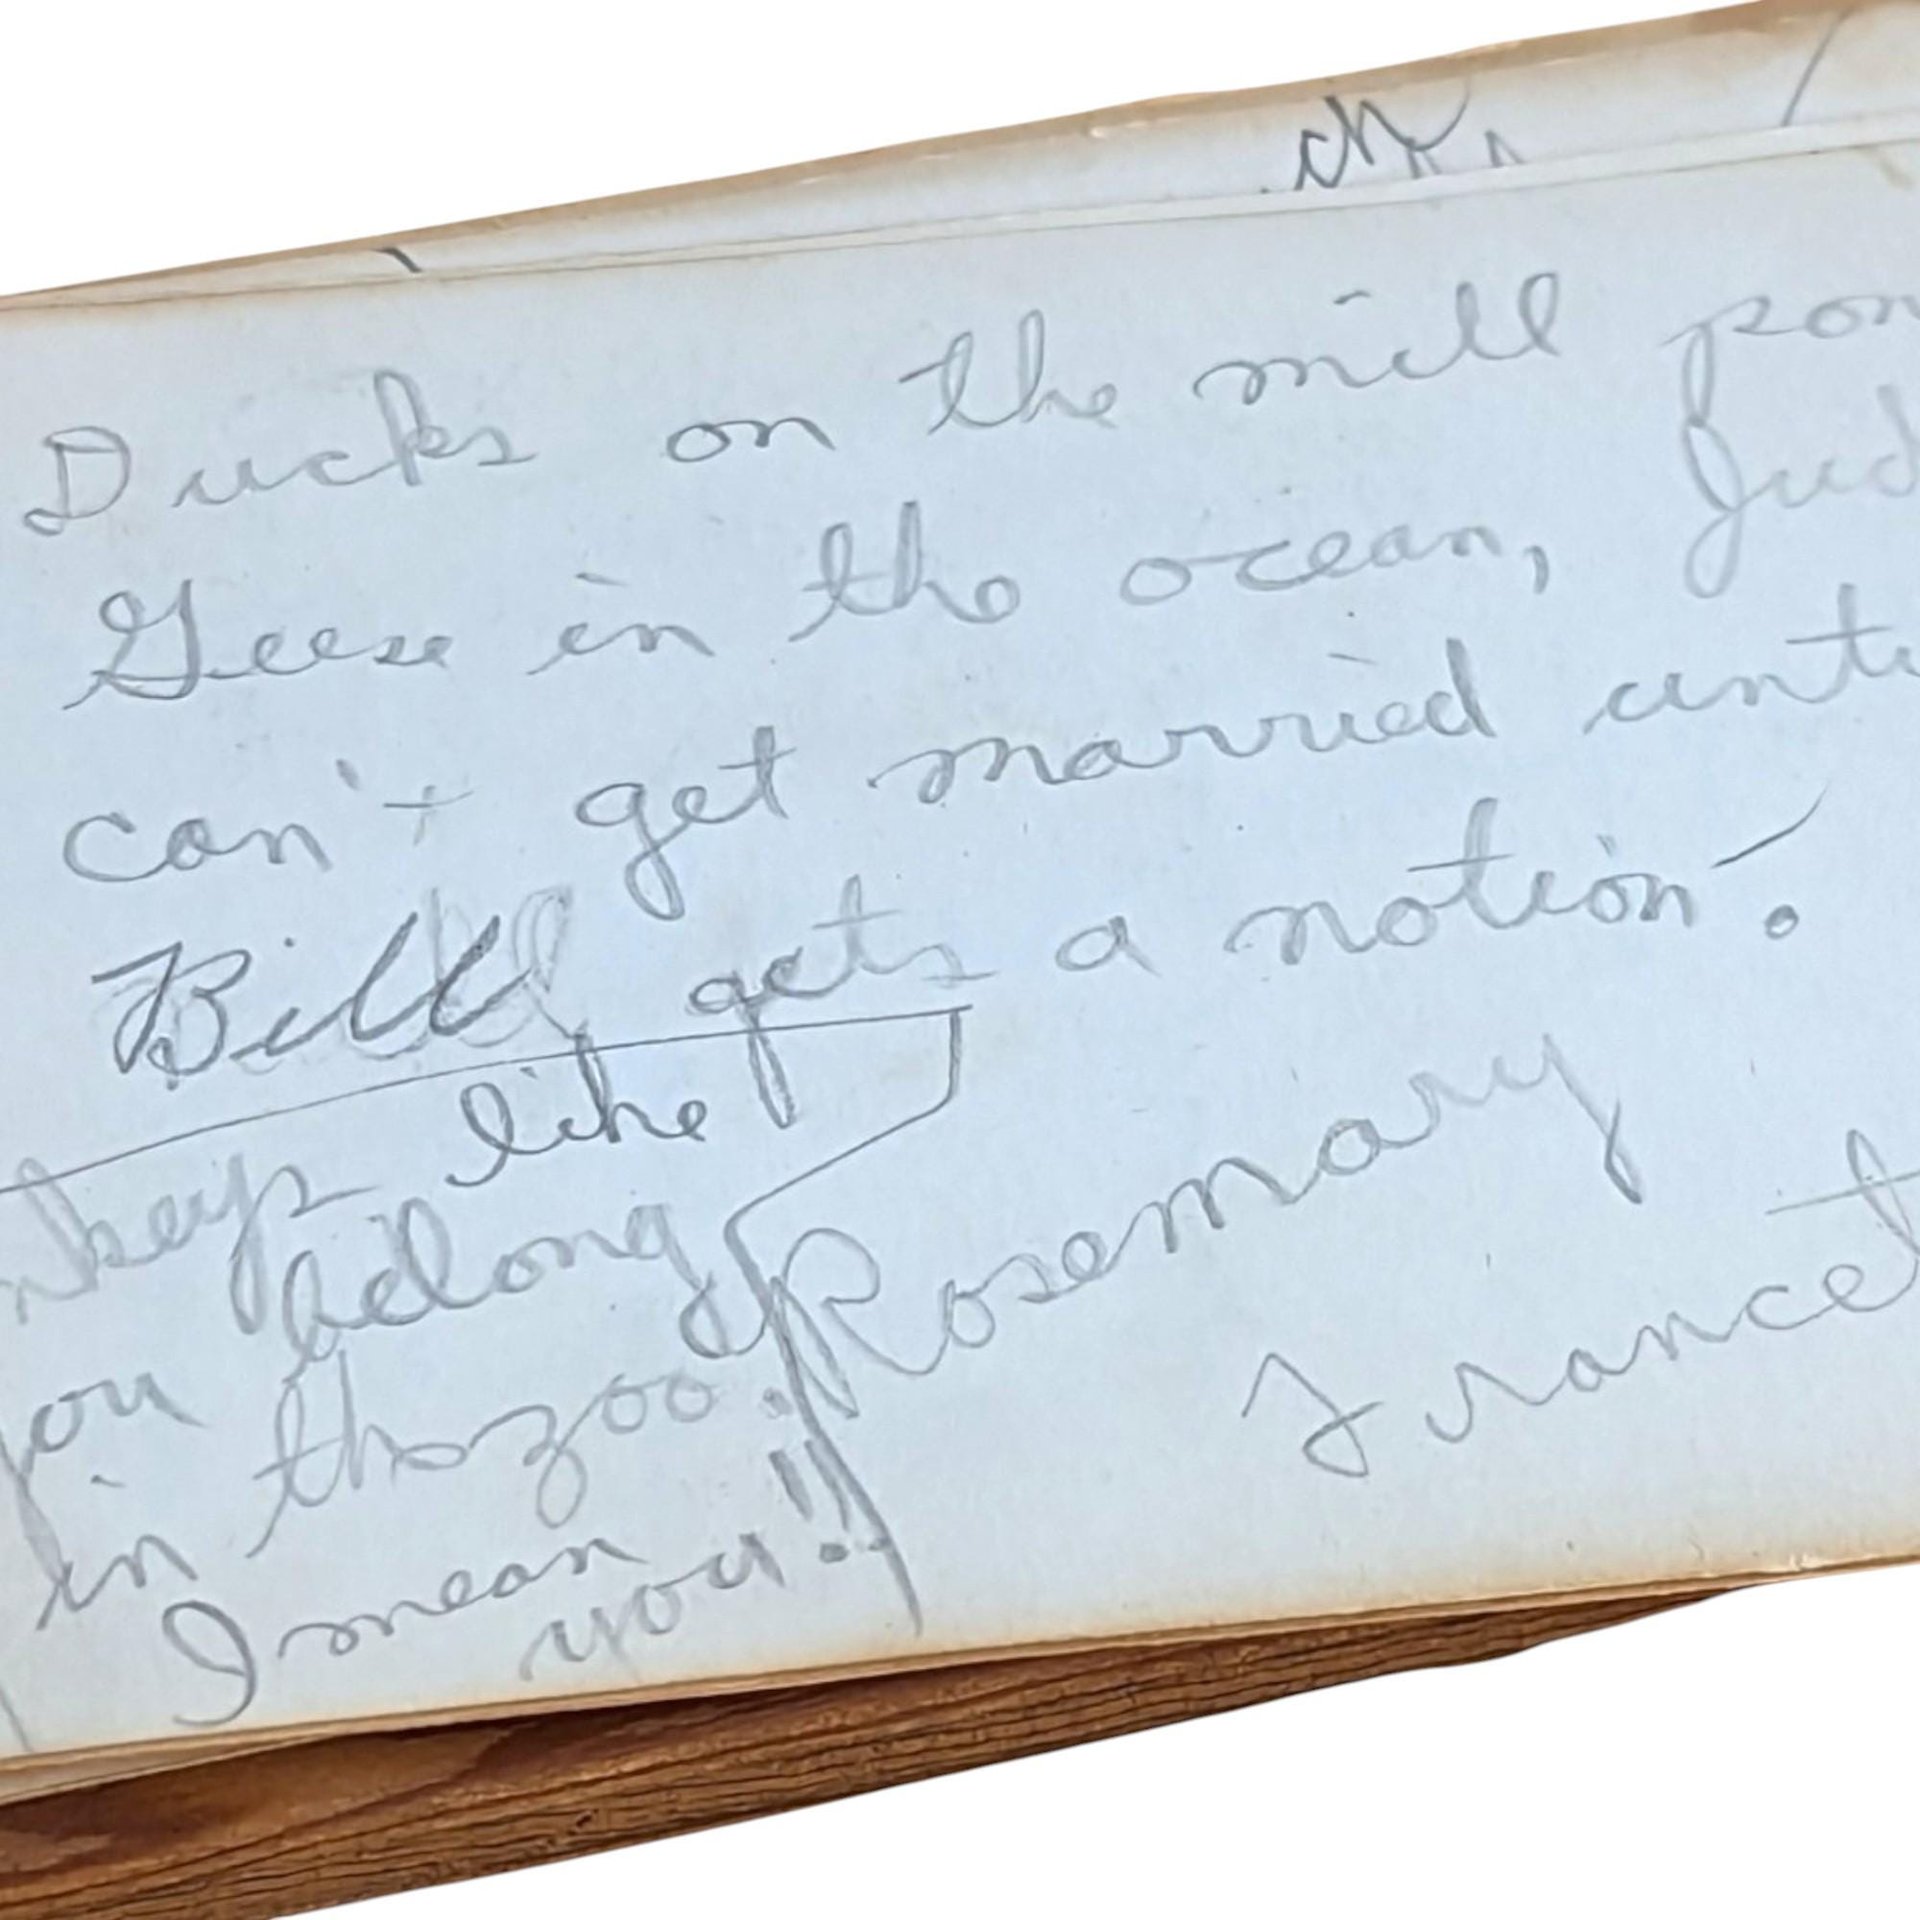 Ducks on the mill pon
Geese in the ocean, Jud
can't get married unti
Bill gets a notion.
Rosemary
Francet
nkeys like
you belong
in the zoo.
I mean
you!!